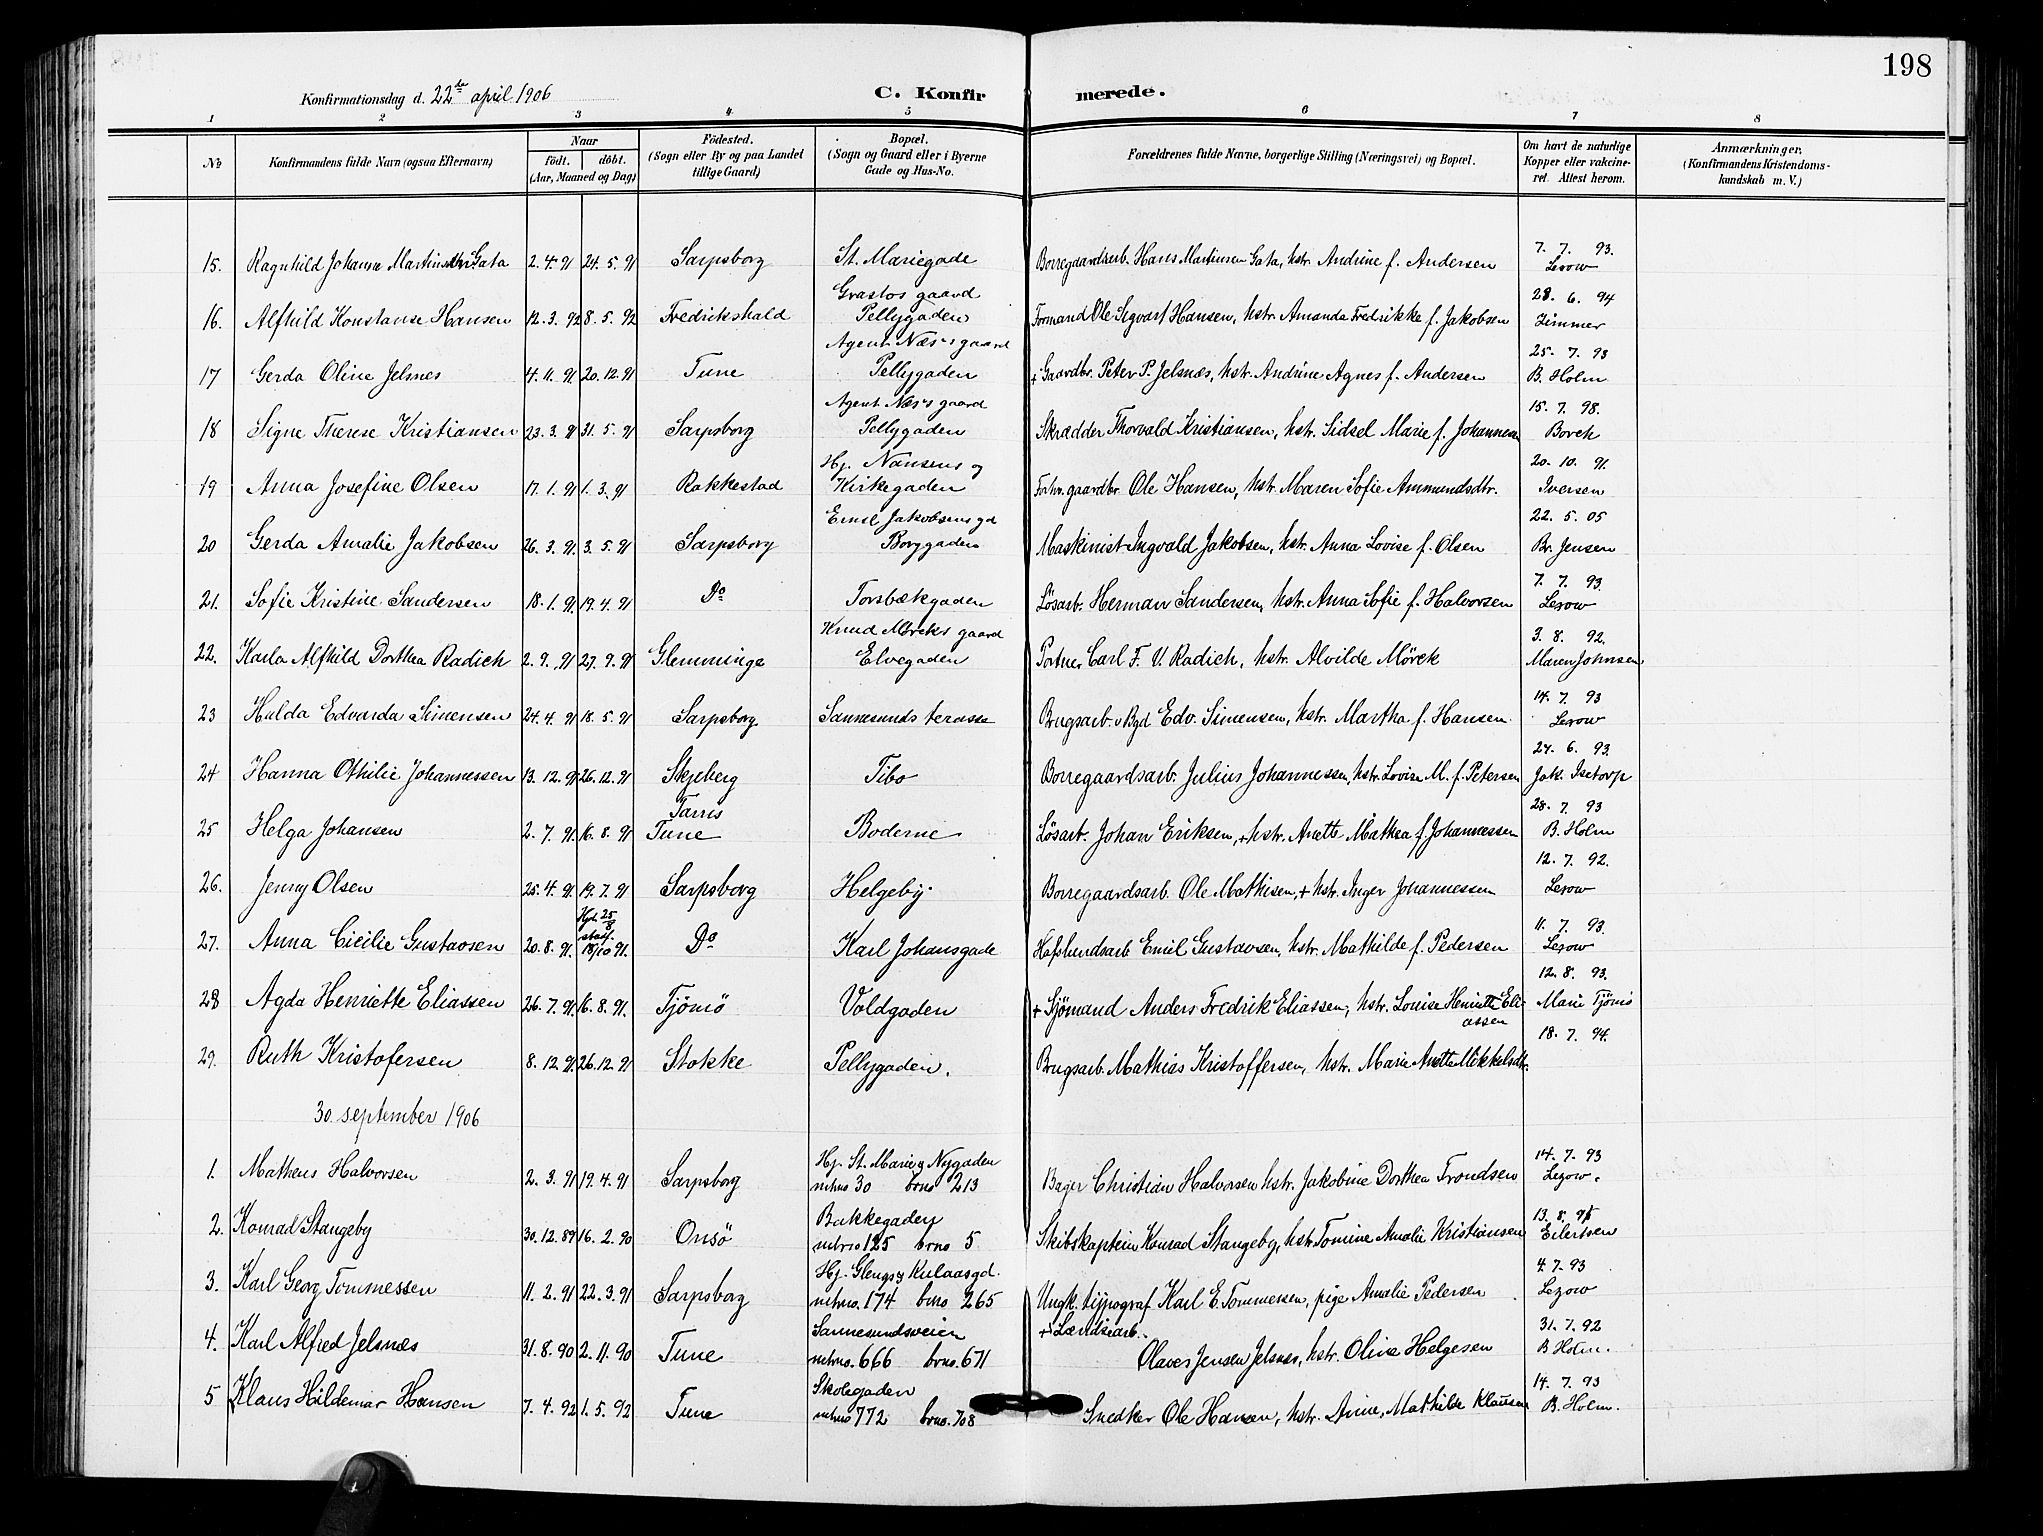 198
Konfirmationsdag d. 22de april 1906 C. Konfirmerede.
1 2 3 4 5 6 7 8
No Konfirmandens fulde Navn (ogsaa Efternavn) Naar födt. döbt. (Aar, Maaned og Dag) Födested. (Sogn eller By og paa Landet tillige Gaard) Bopæl. (Sogn og Gaard eller i Byerne Gade og Hus-No. Forældrenes fulde Navne, borgerlige Stilling (Næringsvei) og Bopæl. Om havt de naturlige Kopper eller vakcineret. Attest herom. Anmærkninger, (Konfirmandens Kristendomskundskab m. V.)
15. Ragnhild Johanne Martinsen Gata 2. 4. 91 24. 5. 91 Sarpsborg St. Mariegade Borregaardsarb. Hans Martinsen Gata, hstr. Andrine f. Andersen 7. 7. 93. Lexow
16. Alfhild Konstanse Hansen 12. 3. 92 8. 5. 92 Fredrikshald Grastos gaard Pellygaden Formand Ole Sigvart Hansen, hstr. Amanda Fredrikke f. Jakobsen 28. 6. 94 Zimmer
17 Gerda Oline Jelsnes 4. 11. 91. 20. 12. 91 Tune Agent Næs's gaard Pellygaden + Gaardbr. Peter P. Jelsnæs, hstr. Andrine Agnes f. Andersen 25. 7. 93 B. Holm
18 Signe Therese Kristiansen 23. 3. 91 31. 5. 91 Sarpsborg Agent Næs's gaard Pellygaden Skrædder Thorvald Kristiansen, hstr. Sidsel Marie f. Johannesen 15. 7. 98. Borch
19 Anna Josefine Olsen 17. 1. 91 1. 3. 91 Rakkestad Hj. Nansens og Kirkegaden Forhv. gaardbr. Ole Hansen, hstr. Maren Sofie Ammundsdtr. 20. 10. 91. Iversen
20 Gerda Amalie Jakobsen 26. 3. 91. 3. 5. 91 Sarpsborg Emil Jakobsens gd Borggaden Maskinist Ingvald Jakobsen, hstr. Anna Lovise f. Olsen 22. 5. 05 Br. Jensen
21. Sofie Kristine Sandersen 18. 1. 91. 19. 4. 91 Do Torsbækgaden Løsarb. Herman Sandersen, hstr. Anna Sofie f. Halvorsen 7. 7. 93. Lexow
22. Karla Alfhild Dorthea Radich 2. 9. 91 27. 9. 91 Glemminge Knud Mørcks gaard Elvegaden Portner Carl F. V. Radich, hstr. Alvilde Mörck 3. 8. 92. Maren Johnsen
23 Hulda Edvarda Simensen 24. 4. 91 18. 5. 91 Sarpsborg Sannesunds terasse Brugsarb. v Bgd Edv. Simensen, hstr. Martha f. Hansen. 14. 7. 93 Lexow
24 Hanna Othilie Johannessen 13. 12. 91 26. 12. 91 Skjeberg Tibo Borregaardsarb. Julius Johannessen, hstr. Lovise M. f. Petersen 27. 6. 93. Jak. Isetorp
25 Helga Johansen 2. 7. 91. 16. 8. 91 Tarris Tune Boderne Løsarb. Johan Eriksen, + hstr. Anette Mathea f. Johannessen 28. 7. 93 B. Holm
26. Jenny Olsen 25. 4. 91. 19. 7. 91 Sarpsborg Helgeby. Borregaardsarb. Ole Mathisen, + hstr. Inger Johannessen 12. 7. 92. Lexow
27. Anna Cicilie Gustavsen 20. 8. 91. Hjd. 25/8 stadf. 18/10 91. Do Karl Johansgade Hafslundsarb Emil Gustavsen, hstr. Mathilde f. Pedersen 11. 7. 93. Lexow
28 Agda Henriette Eliassen 26. 7. 91. 16. 8. 91. Tjömö Voldgaden + Sjömand Anders Fredrik Eliassen, hstr. Louise Henriette Eliassen 12. 8. 93. Marie Tjömö
29. Ruth Kristofersen 8. 12. 91. 26. 12. 91 Stokke Pellygaden. Brugsarb. Mathias Kristoffersen, hstr. Marie Anette Mikkelsdtr. 18. 7. 94.
30. september 1906
1. Matheus Halvorsen 2. 3. 91 19. 4. 91 Sarpsborg Hj. St. Marie g Nygaden mtrno 30 brno 213 Bager Christian Halvorsen hstr. Jakobine Dorthea Trondsen 14. 7. 93 Lexow.
2. Konrad Stangeby 30. 12. 89 16. 2. 90 Onsö Bakkegaden mtrno 125 brno 5 Skibskaptein Konrad Stangeby, hstr. Tomine Amalie Kristiansen 13. 8. 95 Eilertsen
3. Karl Georg Tommessen 11. 2. 91 22. 3. 91 Sarpsborg Hj. Glengs g Kulaasgd. mtrno. 174 brno 265 Ungk. typograf Karl E. Tommesen, pige Amalie Pedersen 4. 7. 93 Lexow
4. Karl Alfred Jelsnæs 31. 8. 90 2. 11. 90 Tune Sannesundsveien mtrno. 666 brno. 671 + Lændsearb. Olaves Jensen Jelsnæs, hstr. Oline Helgesen 31. 7. 92 B Holm.
5 Klaus Hildemar Hansen 7. 4. 92 1. 5. 92 Tune Skolegaden mtrno 772 brno. 708 Snedker Ole Hansen, hstr. Anne, Mathilde Klausen 14. 7. 93 B. Holm.